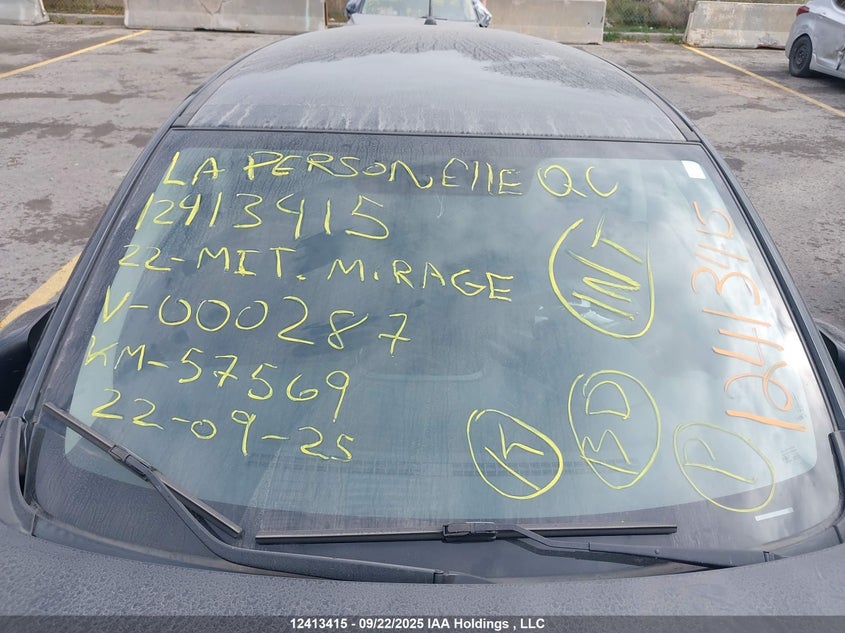 LA PERSONEllE QC
12413415
22-MIT. MIRAGE
V-000287
KM-57569
22-09-25
INT
K
BD
P
12413415
12413415 - 09/22/2025 IAA Holdings , LLC